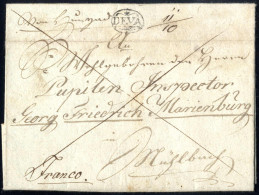 DEVA 11/10
An
Wohlgebohrnen den Herrn
Pupilen Inspector
Georg Friedrich Marienburg
Mühlbach
Franco.